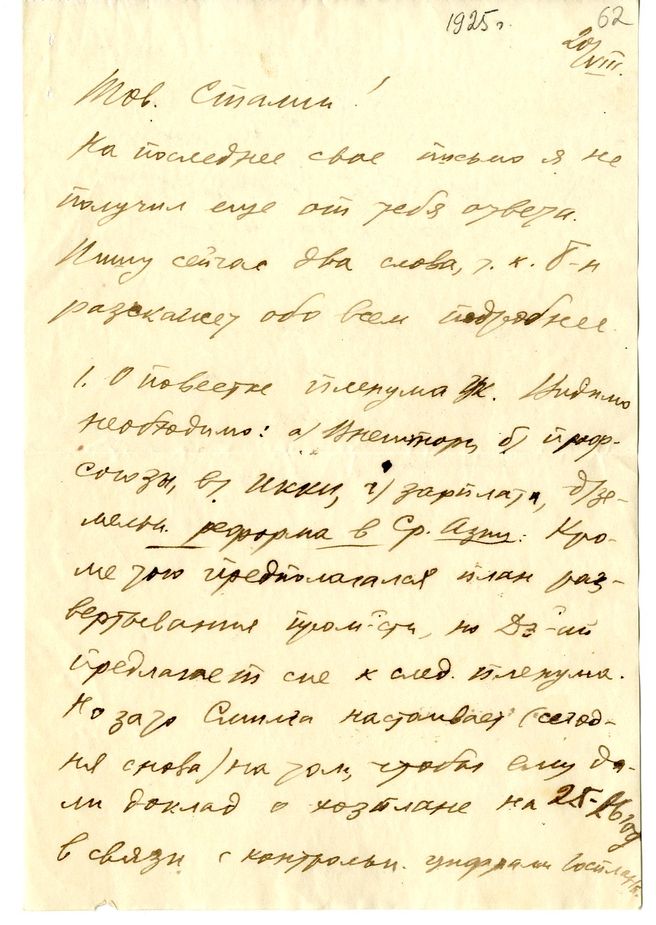 1925 г.
62
20/VIII.
Тов. Сталин!
На последнее свое письмо я не
получил еще от тебя ответа.
Пишу сейчас два слова, т. к. Б-н
разскажет обо всем подробнее.
1. О повестке пленума ЦК. Видимо
необходимо: а) Внешторг, б) проф-
союзы, в) ИККИ, г) зарплата, д) зе-
мельн. реформа в Ср. Азии. Кро-
ме того предполагался план раз-
вертывания пром-сти, но Дз-ий
предлагает сие к след. пленума.
Но зато Смилга настаивает (сегод-
ня снова) на том, чтобы ему да-
ли доклад о хозплане на 25-26 год
в связи с контрольн. цифрами Госплана.